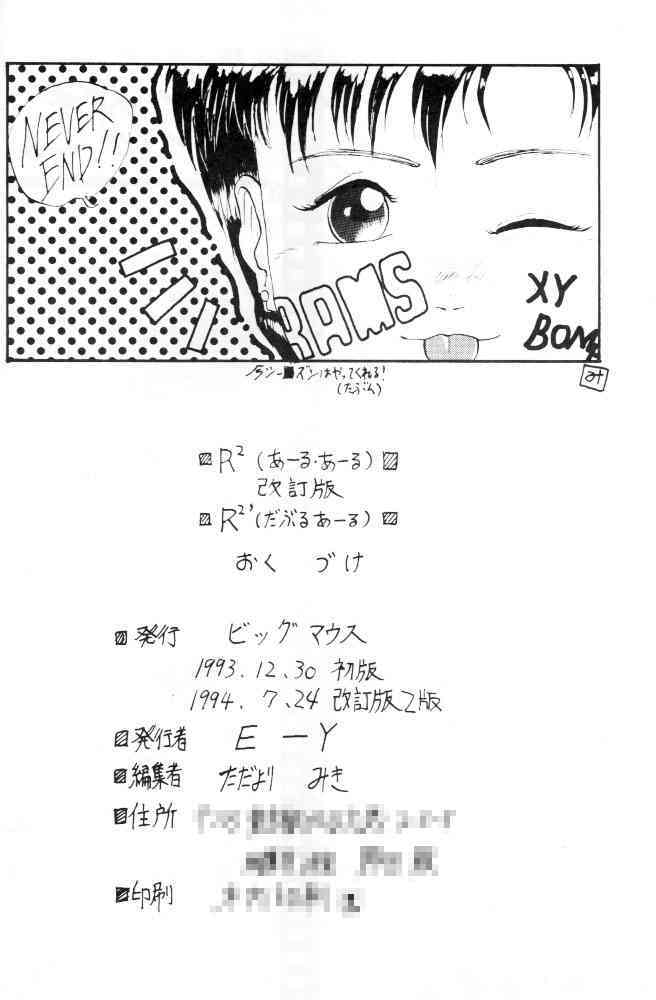 NEVER
END!!
RAMS
XY
BOM
ズンはやってくれる!
(たぶん)
み
R² (あーる・あーる)
改訂版
R²'(だぶるあーる)
おくづけ
発行 ビッグマウス
1993.12.30 初版
1994.7.24 改訂版2版
発行者 E-Y
編集者 ただより みき
住所
印刷